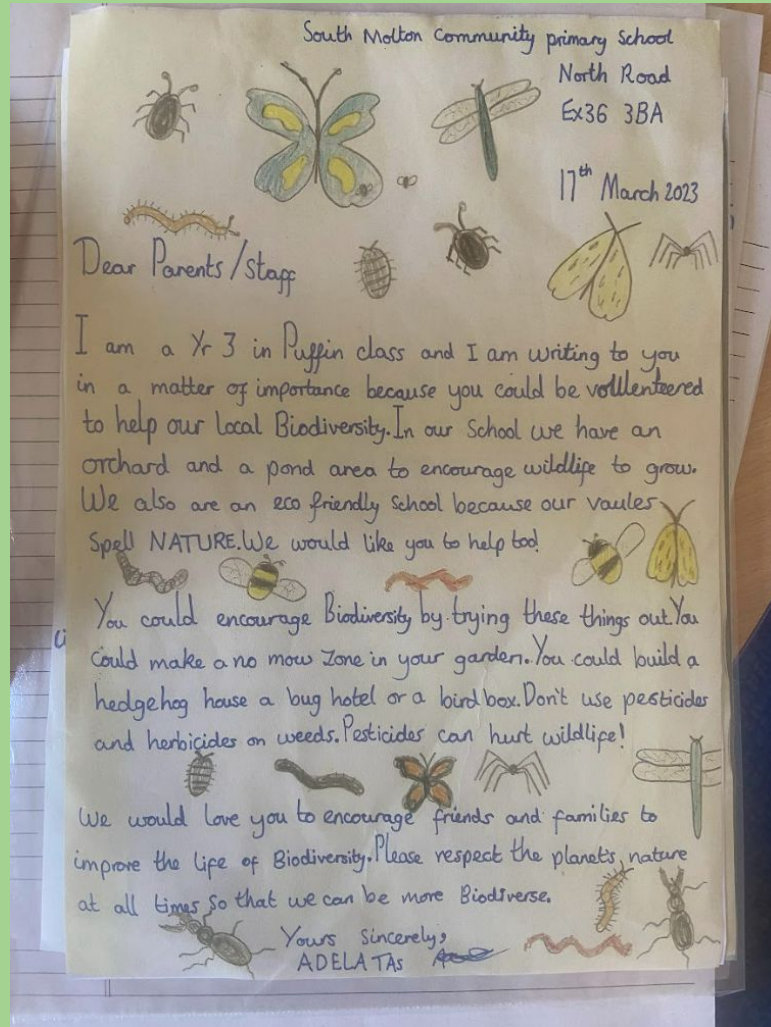 South Molton Community primary School
North Road
Ex36 3BA
17th March 2023
Dear Parents/Staff
I am a Yr 3 in Puffin class and I am writing to you
in a matter of importance because you could be vollenteered
to help our local Biodiversity. In our School we have an
orchard and a pond area to encourage wildlife to grow.
We also are an eco friendly School because our vaules
Spell NATURE. We would like you to help too!
You could encourage Biodiversity by trying these things out. You
could make a no mow zone in your garden. You could build a
hedgehog house a bug hotel or a bird box. Don't use pesticides
and herbicides on weeds. Pesticides can hurt wildlife!
We would love you to encourage friends and families to
improve the life of Biodiversity. Please respect the planet's nature
at all times so that we can be more Biodiverse.
Yours Sincerely,
ADELA TAs